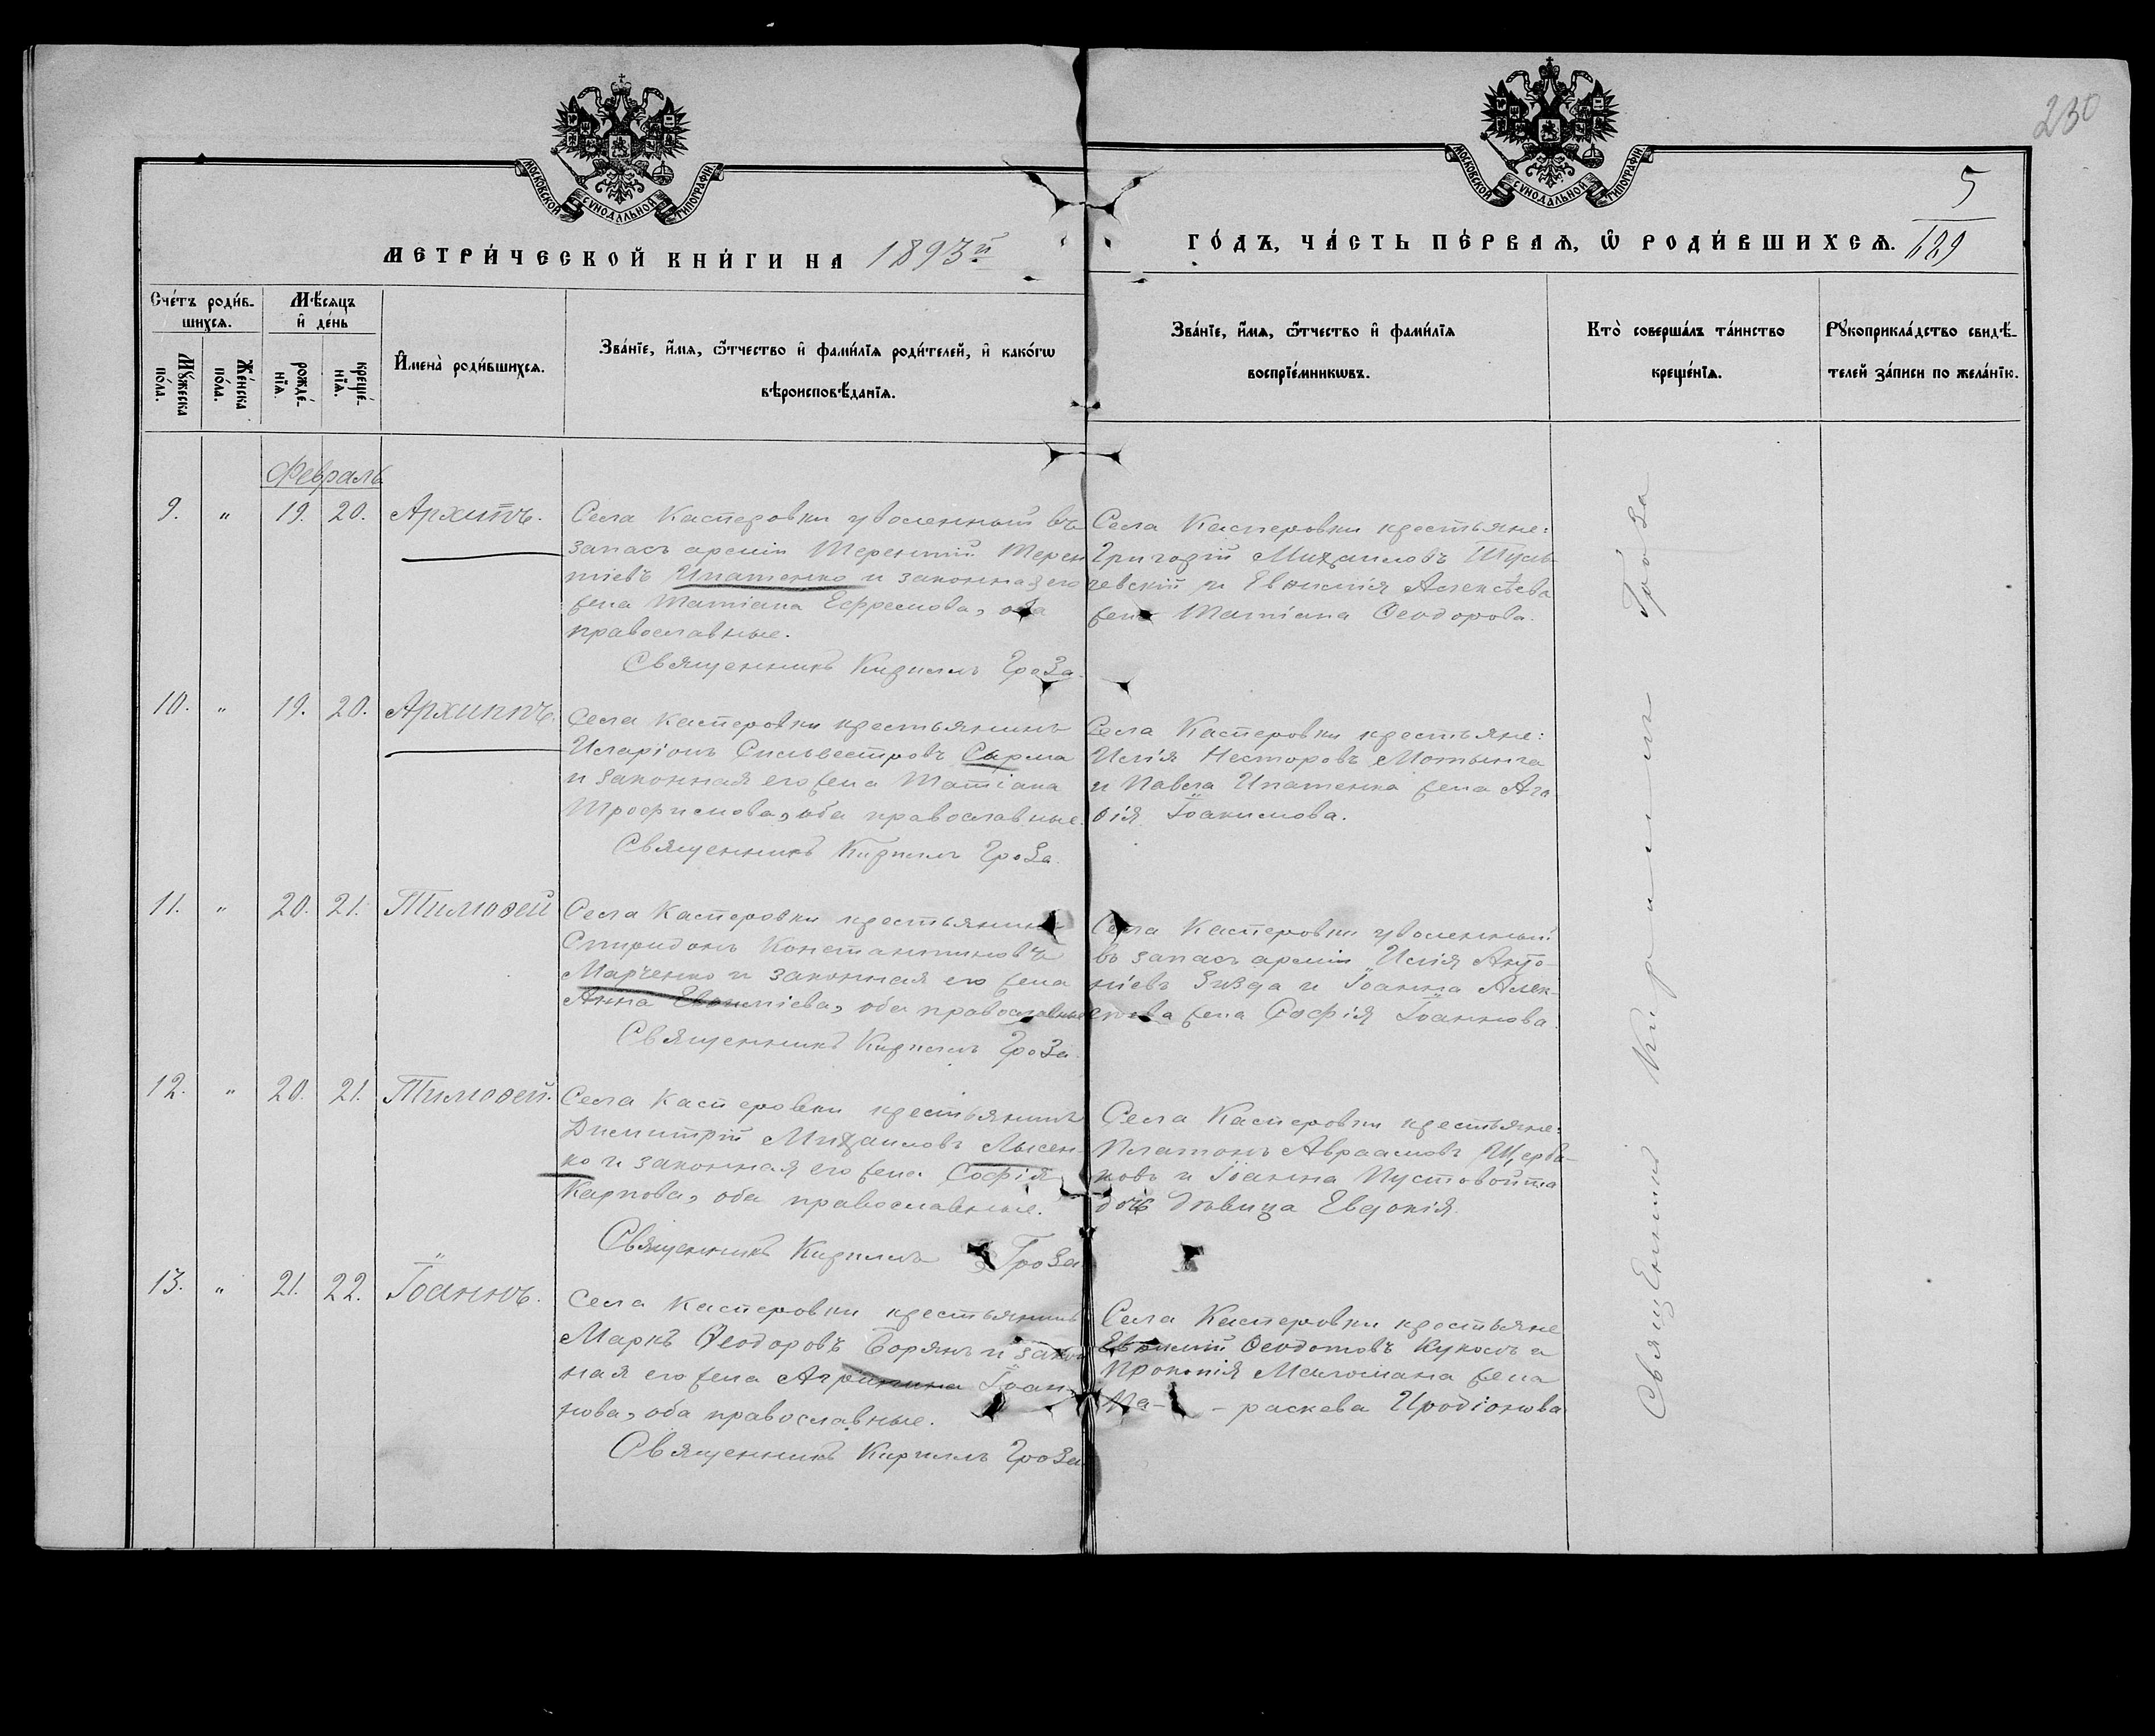 230
МОСКОВСКОЙ СѴНОДАЛЬНОЙ ТИПОГРАФІИ
МОСКОВСКОЙ СѴНОДАЛЬНОЙ ТИПОГРАФІИ
5
МЕТРИ́ЧЕСКОЙ КНИ́ГИ НА 1893й
ГО́ДЪ, ЧА́СТЬ ПЕ́РВАѦ, Ѡ҆ РОДИ́ВШИХСѦ.
Сче́тъ роди́в-
шихсѧ.
Му́жеска по́ла.
Же́нска по́ла.
Мѣ́сѧцъ
и҆ де́нь
рожде́-
нїѧ.
креще́-
нїѧ.
И҆мена̀ роди́вшихсѧ.
Зва́нїе, и҆́мѧ, ѻ҆́тчество и҆ фами́лїѧ роди́телей, и҆ како́гѡ
вѣроисповѣ́данїѧ.
Зва́нїе, и҆́мѧ, ѻ҆́тчество и҆ фами́лїѧ
воспрїе́мникѡвъ.
Кто̀ соверша́лъ та́инство
креще́нїѧ.
Рꙋкоприкла́дство свидѣ́-
телей за́писи по жела́нїю.
Февраль
9. " 19. 20. Архипъ.
Села Касперовки уволенный въ
запасъ арміи Терентій Терен
тіевъ Ипатенко и законная его
жена Татіана Ефремова, оба
православные.
Священникъ Кириллъ Гроза.
Села Касперовки крестьяне:
Григорій Михаиловъ Шуль
чевскій и Евѳимія Алексѣева
жена Татіана Ѳеодорова.
10. " 19. 20. Архиппъ.
Села Касперовки крестьянинъ
Иларіонъ Сильвестровъ Сирма
и законная его жена Татіана
Трофимова, оба православные.
Священникъ Кириллъ Гроза.
Села Касперовки крестьяне:
Илія Несторовъ Мотынга
и Павла Ипатенка жена Ага
ѳія Іоакимова.
11. " 20. 21. Тимоѳей
Села Касперовки крестьянинъ
Спиридонъ Константиновъ
Марченко и законная его жена
Анна Евѳиміева, оба православные
Священникъ Кириллъ Гроза.
Села Касперовки уволенный
въ запасъ арміи Илія Анто-
ніевъ Зизда и Іоанна Алек-
сѣева жена Софія Іоаннова.
12. " 20. 21. Тимоѳей.
Села Касперовки крестьянинъ
Димитрій Михаиловъ Лысен-
ко и законная его жена Софія
Карпова, оба православные.
Священникъ Кириллъ Гроза
Села Касперовки крестьяне:
Платонъ Авраамовъ Щерба-
ковъ и Іоанна Пустовойта
дочь дѣвица Евдокія.
13. " 21. 22. Іоаннъ.
Села Касперовки крестьянинъ
Маркъ Ѳеодоровъ Борянъ и закон
ная его жена Агрипина Іоан-
нова, оба православные.
Священникъ Кириллъ Гроза
Села Касперовки крестьяне
Евѳимій Ѳеодотовъ Куколъ и
Прокопія Малюмана жена
Па- - раскева Иродіонова
Священникъ Кириллъ Гроза